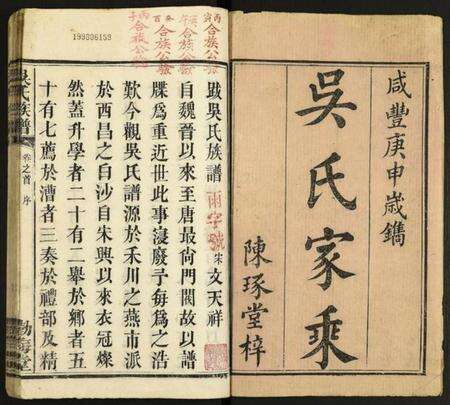 咸豐庚申歲鐫
吳氏家乘
陳琢堂梓
合族公發
合族公發
合族公發
199806159
跋吳氏族譜
雨字號
宋文天祥
自魏晉以來至唐最尚門閥故以譜
牒爲重近世此事寖廢予每爲之浩
歎今觀吳氏譜源於禾川之燕市派
於西昌之白沙自朱興以來衣冠燦
然蓋升學者二十有二舉於鄉者五
十有七薦於漕者三奏於禮部及精
吳氏族譜
卷之首
序